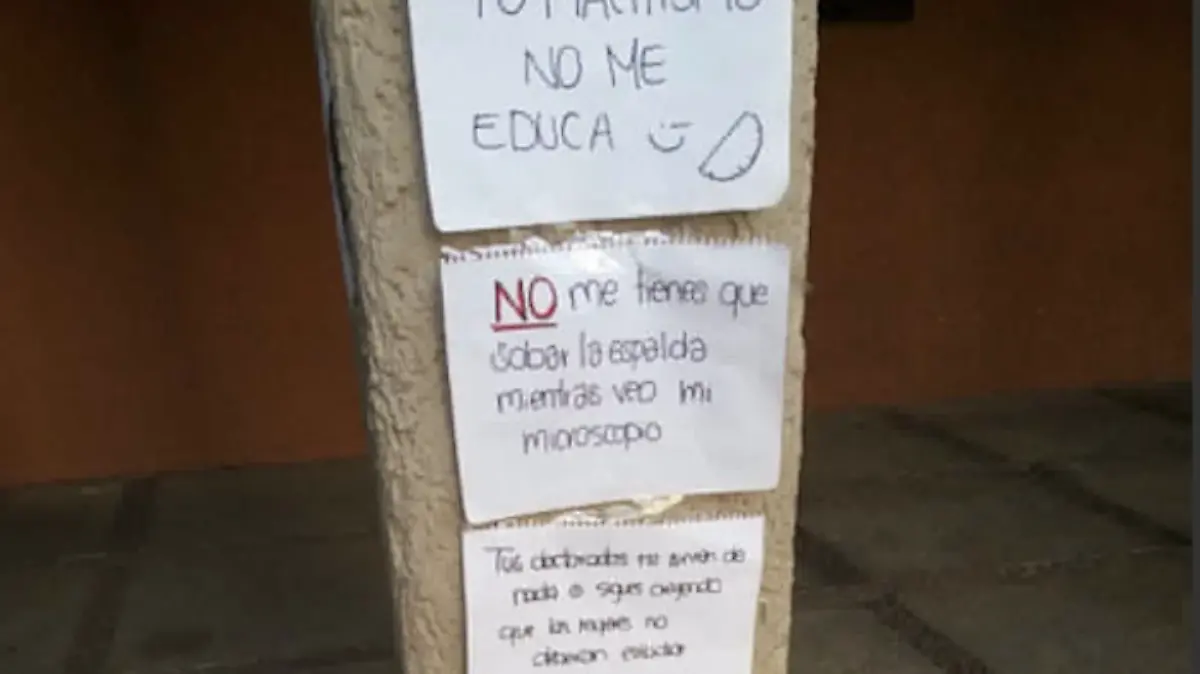 TU MACHISMO
NO ME
EDUCA
NO me tienes que
sobar la espalda
mientras veo mi
microscopio
Tus doctorados no sirven de
nada si sigues creyendo
que las mujeres no
deberían estudiar